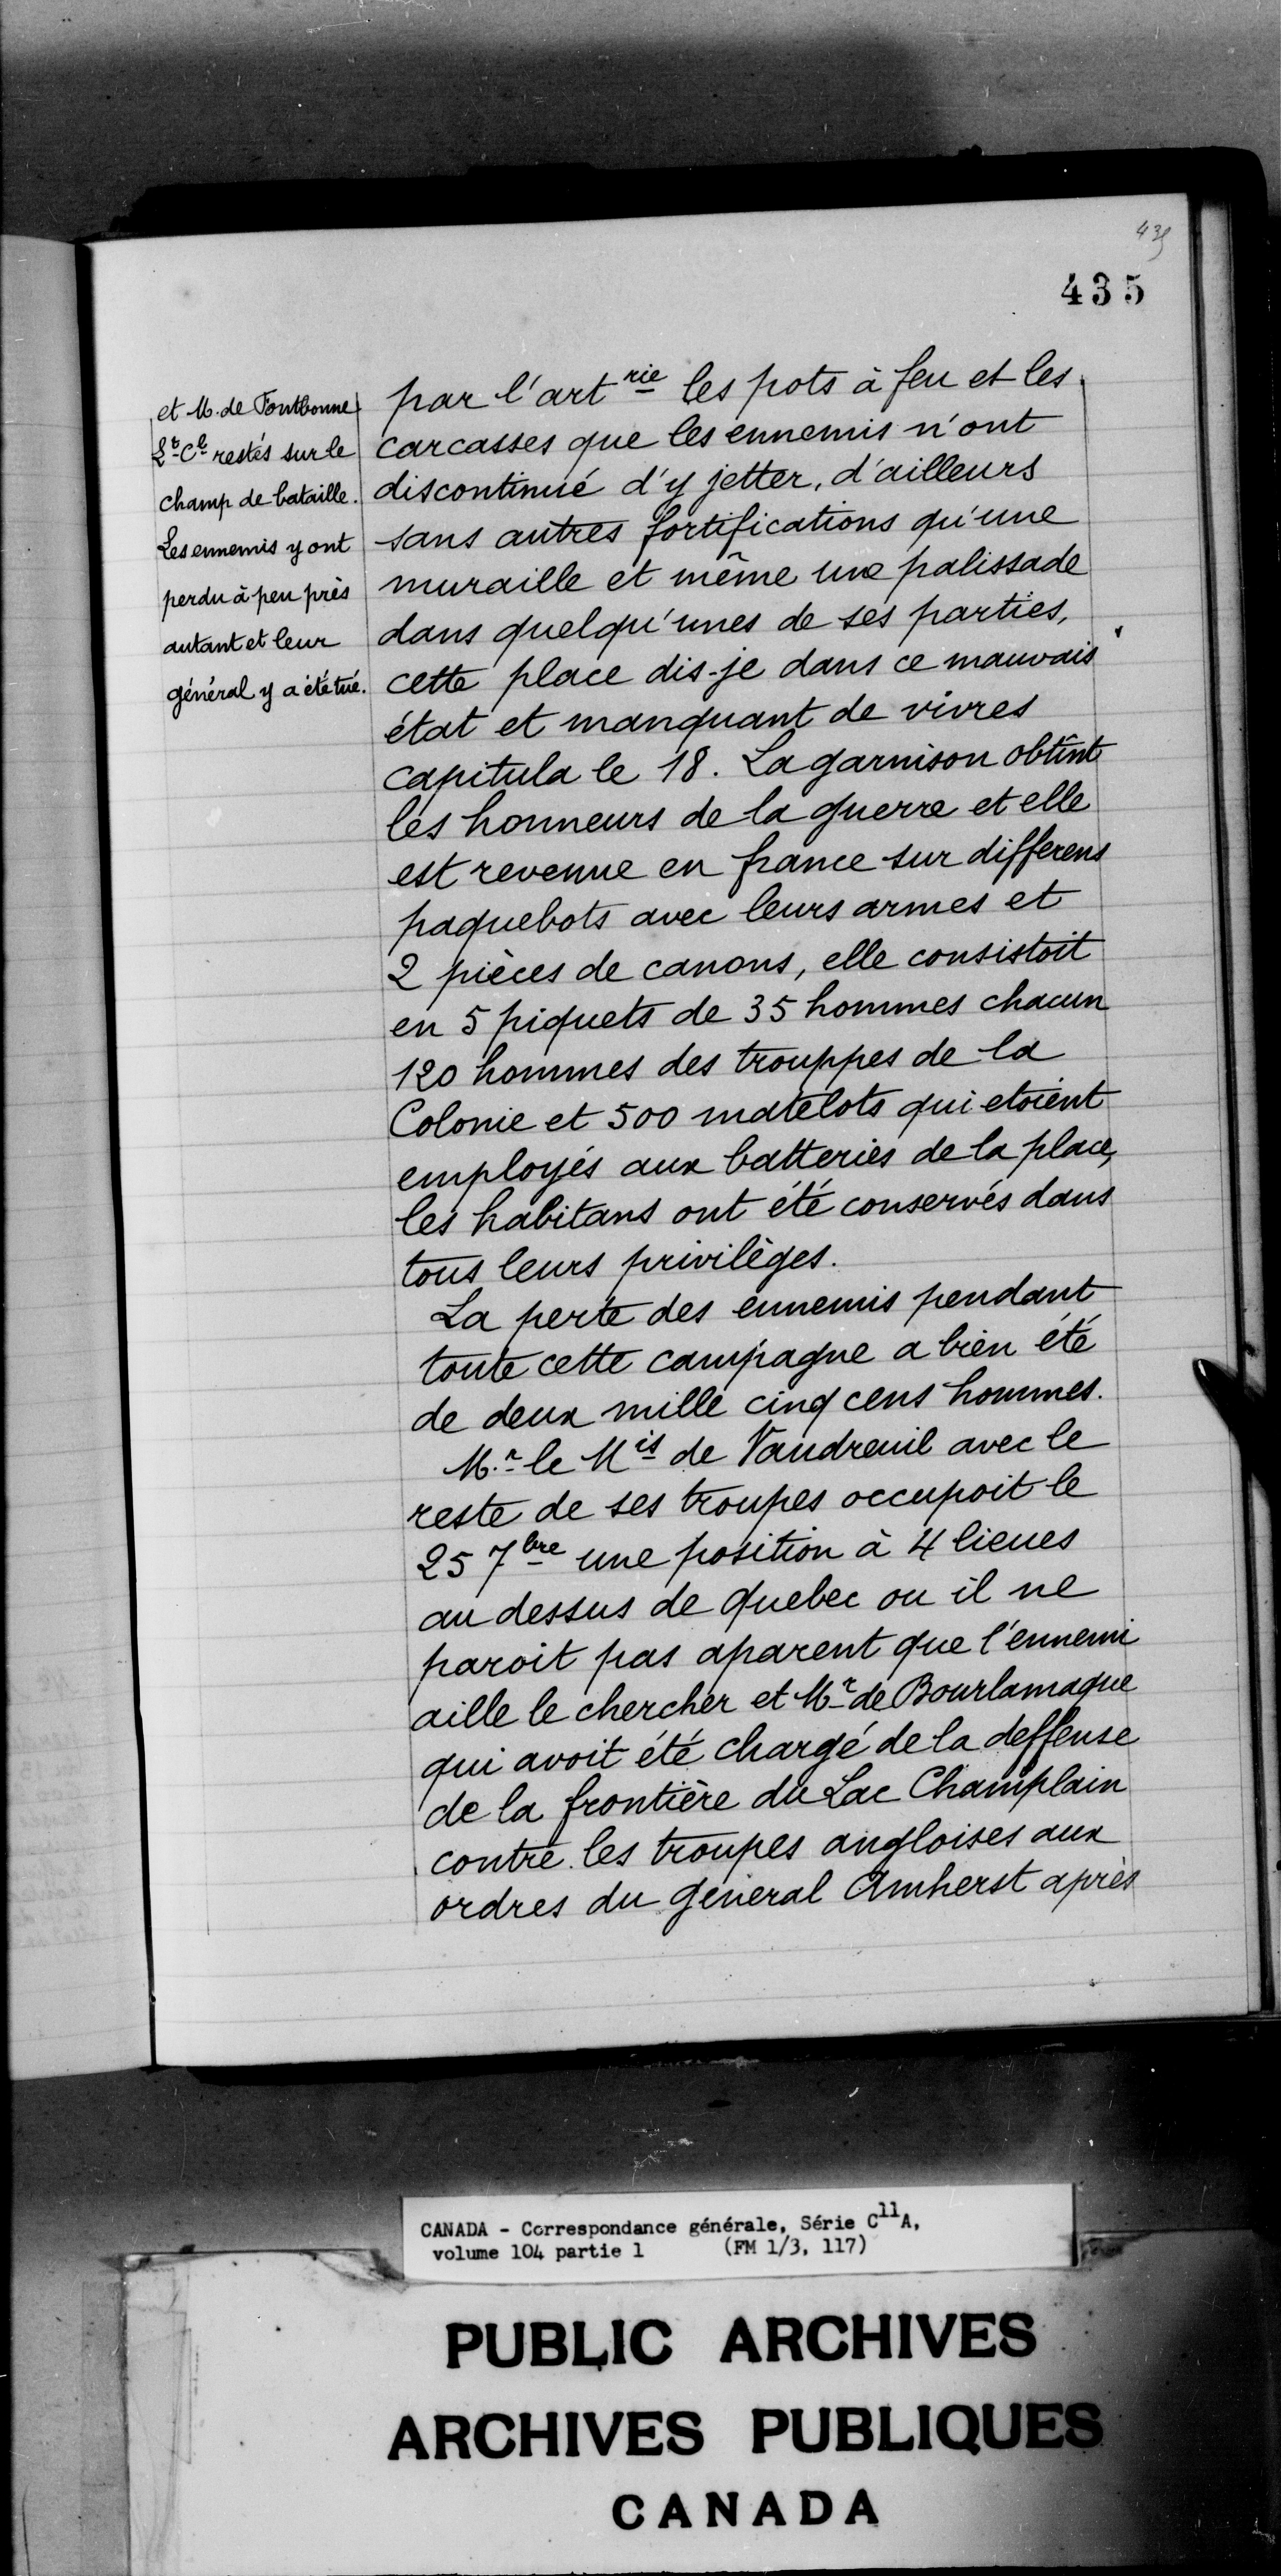 435
435
et M. de Fontbonne
Lt. Cl. restés sur le
champ de bataille.
Les ennemis y ont
perdu à peu près
autant et leur
général y a été tué.
par l'art rie les pots à feu et les
carcasses que les ennemis n'ont
discontinué d'y jetter, d'ailleurs
sans autres fortifications qu'une
muraille et même une palissade
dans quelqu'unes de ses parties,
cette place dis-je dans ce mauvais
état et manquant de vivres
capitula le 18. La garnison obtînt
les honneurs de la guerre et elle
est revenue en france sur differens
paquebots avec leurs armes et
2 pièces de canons, elle consistoit
en 5 piquets de 35 hommes chacun
120 hommes des trouppes de la
Colonie et 500 matelots qui etoient
employés aux batteries de la place,
les habitans ont été conservés dans
tous leurs privilèges.
La perte des ennemis pendant
toute cette campagne a bien été
de deux mille cinq cens hommes.
M.r le Mis de Vaudreuil avec le
reste de ses troupes occupoit le
25 7bre une position à 4 lieues
au dessus de quebec ou il ne
paroit pas aparent que l'ennemi
aille le chercher et Mr de Bourlamaque
qui avoit été chargé de la deffense
de la frontière du Lac Champlain
contre les troupes angloises aux
ordres du général Amherst après
CANADA - Correspondance générale, Série C11A,
volume 104 partie 1 (FM 1/3, 117)
PUBLIC ARCHIVES
ARCHIVES PUBLIQUES
CANADA